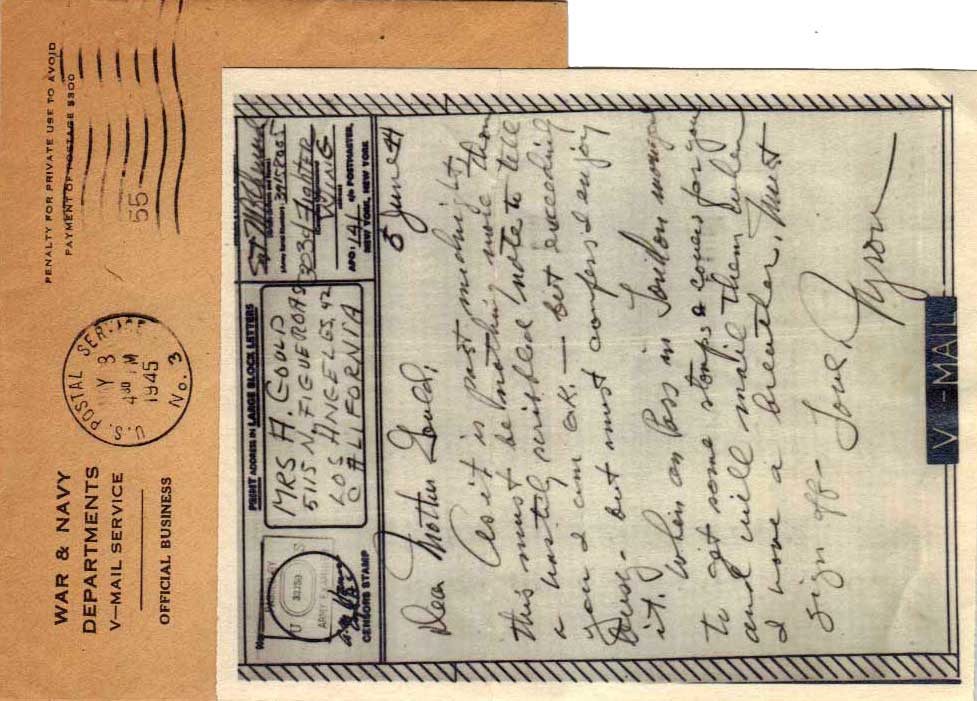 WAR & NAVY
DEPARTMENTS
V—MAIL SERVICE
OFFICIAL BUSINESS
U.S. POSTAL SERVICE
3
4 30 PM
1945
No. 3
PENALTY FOR PRIVATE USE TO AVOID
PAYMENT OF POSTAGE $300
55
CENSORS STAMP
PRINT ADDRESS IN LARGE BLOCK LETTERS
MRS A. GOULD
5115 N. FIGUEROA ST
LOS ANGELES, 42
CALIFORNIA
303d FIGHTER
WING
APO: 141 c/o POSTMASTER,
NEW YORK, NEW YORK
5 June 44
Dear Mother Gould,
As it is past midnight
this must be nothing more than
a hastily scribbled note to tell
you I am OK. — but exceeding
busy - but must confess I enjoy
it. When on Pass in London manage
to get some stamps & covers for you
and will mail them when
I have a breather. Must
sign off - Love
V - MAIL